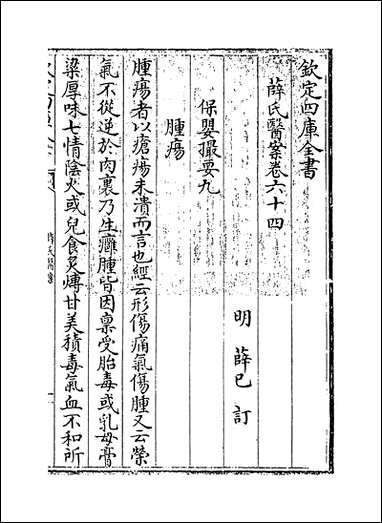 欽定四庫全書
薛氏醫案卷六十四
明 薛己 訂
保嬰撮要九
腫瘍
腫瘍者以瘡瘍未潰而言也經云形傷痛氣傷腫又云榮
氣不從逆於肉裏乃生癰腫皆因禀受胎毒或乳母膏
粱厚味七情陰火或兒食炙煿甘美積毒氣血不和所
薛氏醫案